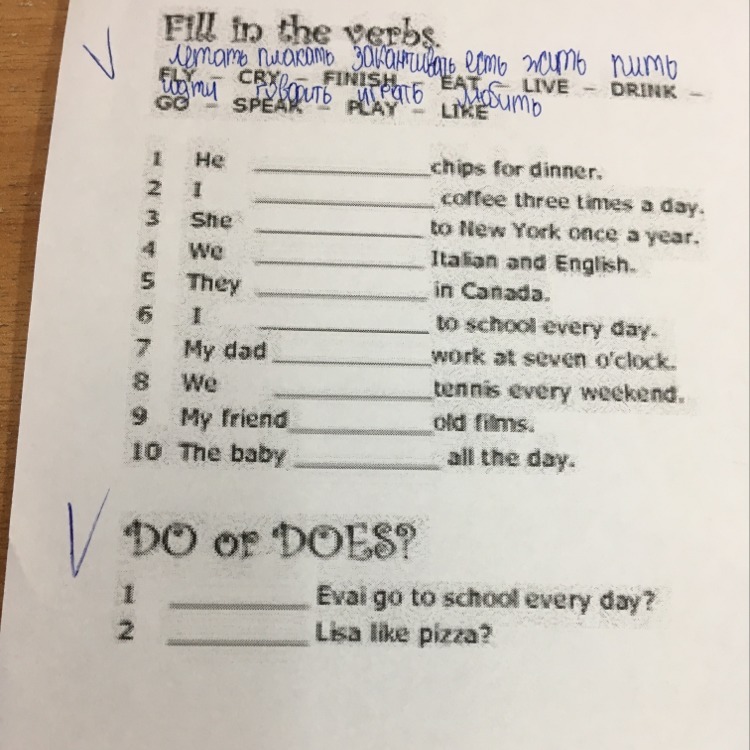 Fill in the verbs.
летать плакать заканчивать есть жить пить
FLY – CRY – FINISH – EAT – LIVE – DRINK –
идти говорить играть любить
GO – SPEAK – PLAY – LIKE
1 He ____________ chips for dinner.
2 I ____________ coffee three times a day.
3 She ____________ to New York once a year.
4 We ____________ Italian and English.
5 They ____________ in Canada.
6 I ____________ to school every day.
7 My dad ____________ work at seven o'clock.
8 We ____________ tennis every weekend.
9 My friend ____________ old films.
10 The baby ____________ all the day.
DO or DOES?
1 ____________ Evai go to school every day?
2 ____________ Lisa like pizza?